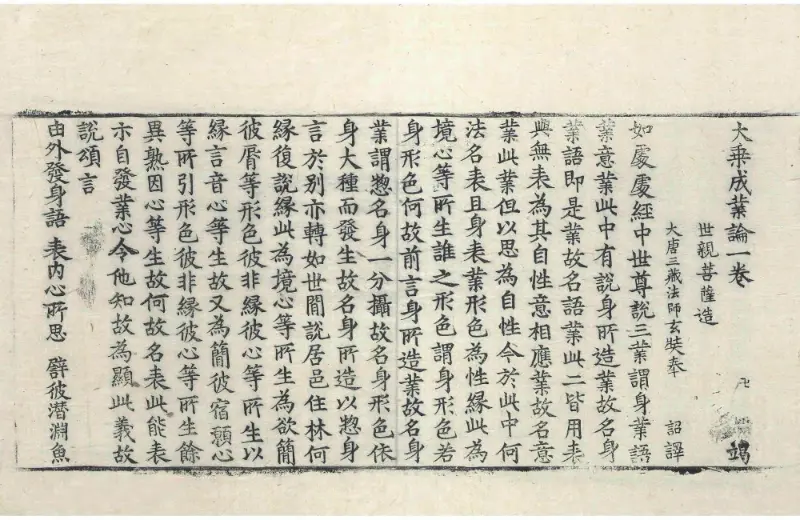 大乗成業論一卷 卍 竭
世親菩薩造
大唐三藏法師玄奘奉 詔譯
如處處經中世尊說三業謂身業語
業意業此中有說身所造業故名身
業語即是業故名語業此二皆用表
與無表為其自性意相應業故名意
業此業但以思為自性今於此中何
法名表且身表業形色為性緣此為
境心等所生誰之形色謂身形色若
身形色何故前言身所造業故名身
業謂惣名身一分攝故名身形色依
身大種而發生故名身所造以惣身
言於別亦轉如世間說居邑住林何
緣復說緣此為境心等所生為欲簡
彼脣等形色彼非緣彼心等所生以
緣言音心等生故又為簡彼宿願心
等所引形色彼非緣彼心等所生餘
異熟因心等生故何故名表此能表
示自發業心令他知故為顯此義故
說頌言
由外發身語 表內心所思 譬彼潛淵魚